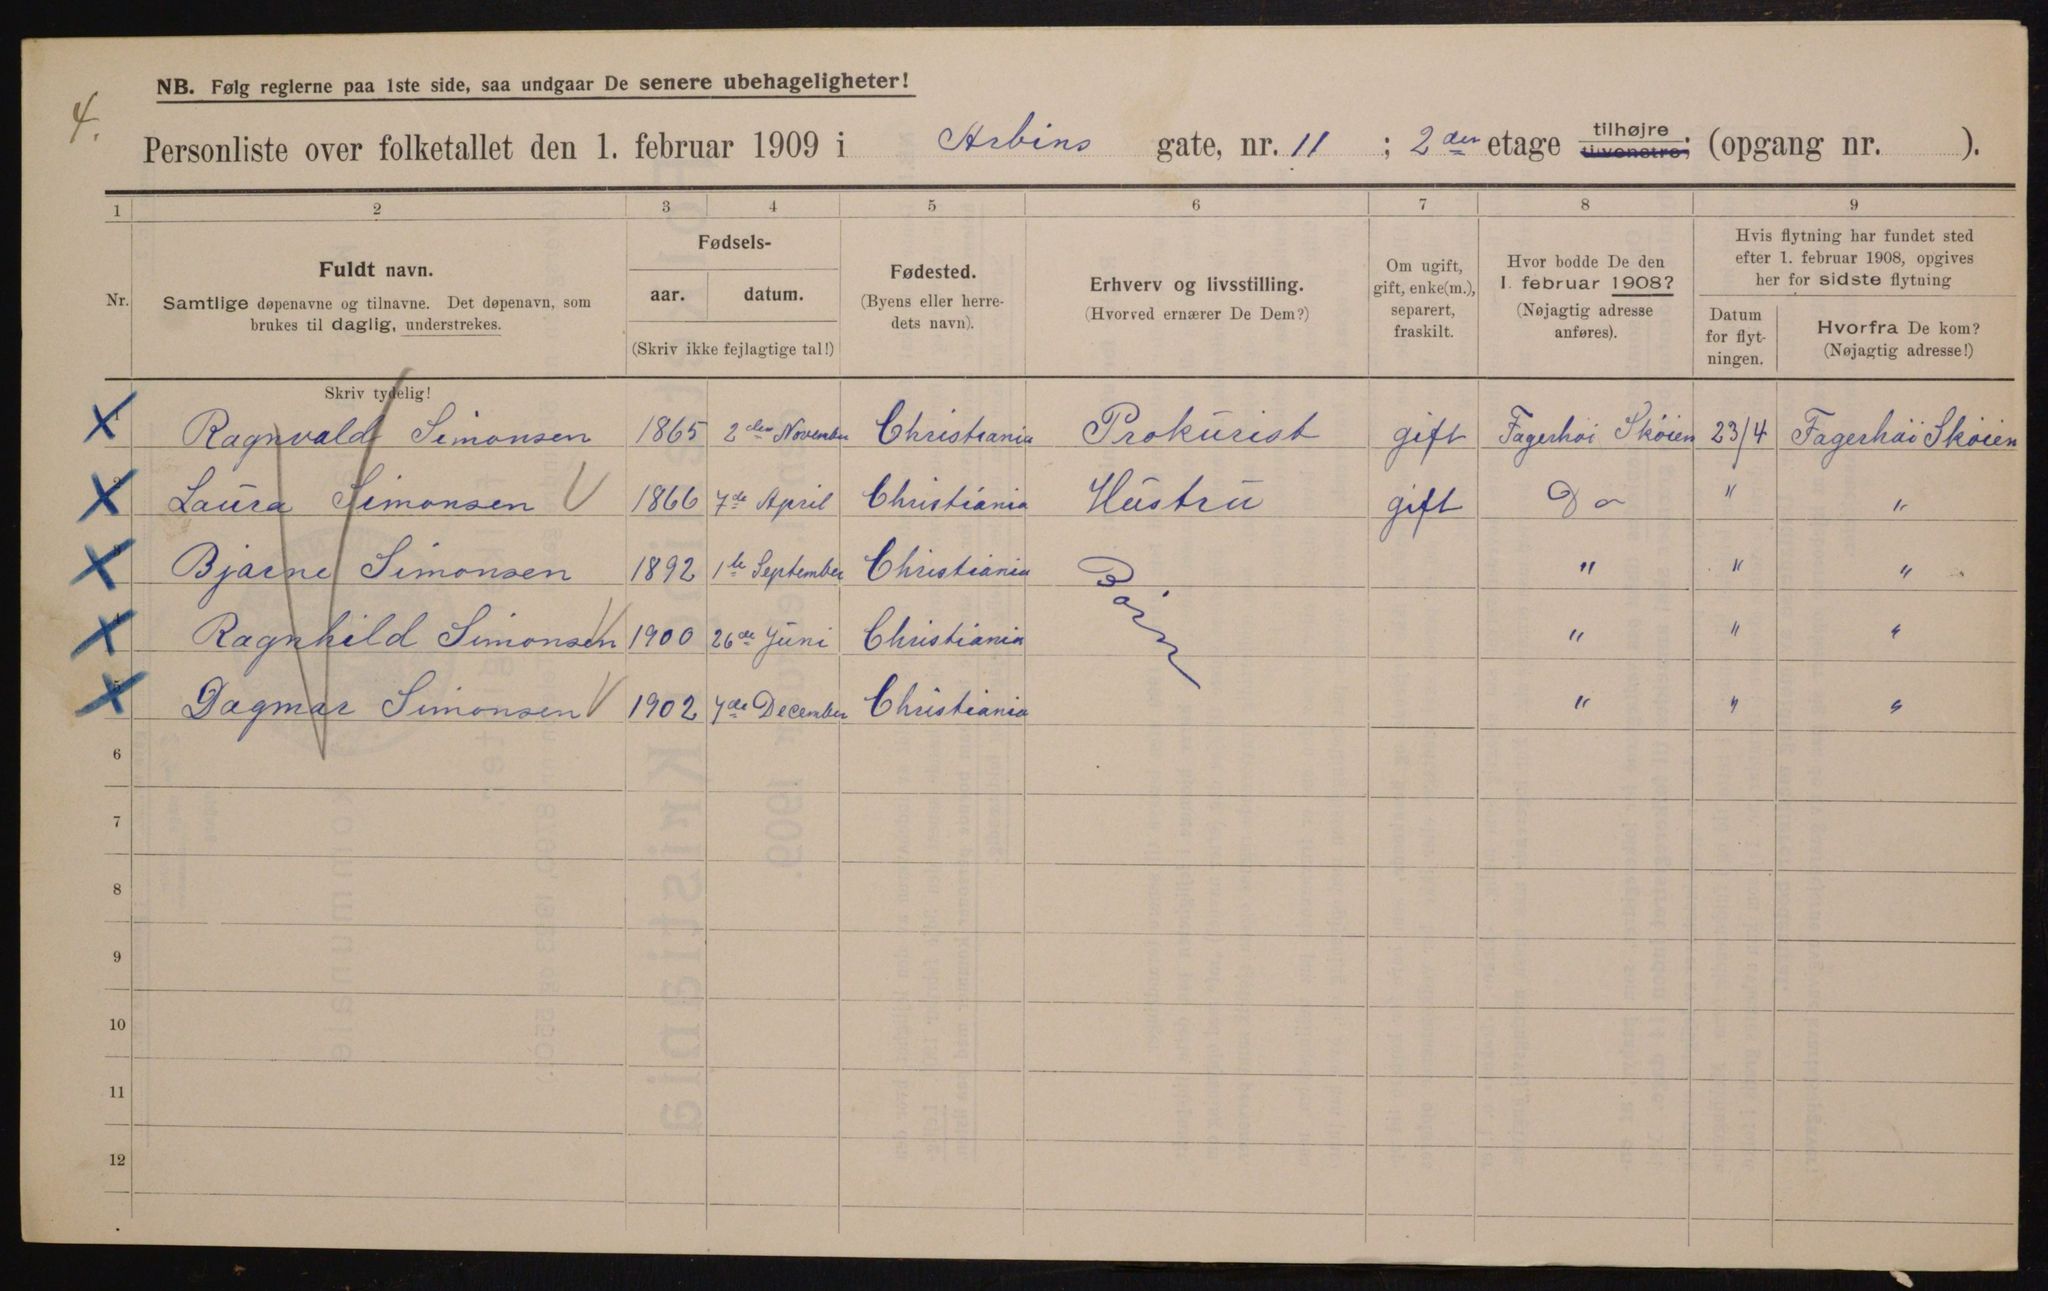 4.
NB. Følg reglerne paa 1ste side, saa undgaar De senere ubehageligheter!
Personliste over folketallet den 1. februar 1909 i Arbins gate, nr. 11 ; 2den etage tilhøjre tilvenstre; (opgang nr. ).
1 2 3 4 5 6 7 8 9
Nr.
Fuldt navn.
Samtlige døpenavne og tilnavne. Det døpenavn, som
brukes til daglig, understrekes.
Fødsels-
aar. datum.
(Skriv ikke fejlagtige tal!)
Fødested.
(Byens eller herre-
dets navn).
Erhverv og livsstilling.
(Hvorved ernærer De Dem?)
Om ugift,
gift, enke(m.),
separert,
fraskilt.
Hvor bodde De den
1. februar 1908?
(Nøjagtig adresse
anføres).
Hvis flytning har fundet sted
efter 1. februar 1908, opgives
her for sidste flytning
Datum
for flyt-
ningen.
Hvorfra De kom?
(Nøjagtig adresse!)
Skriv tydelig!
1 Ragnvald Simonsen 1865 2den November Christiania Prokurist gift Fagerhøi Skøien 23/4 Fagerhøi Skøien
2 Laura Simonsen 1866 7de April Christiania Hustru gift Do " "
3 Bjarne Simonsen 1892 1ste September Christiania Børn " " "
4 Ragnhild Simonsen 1900 26de Juni Christiania " " "
5 Dagmar Simonsen 1902 7de December Christiania " " "
6
7
8
9
10
11
12